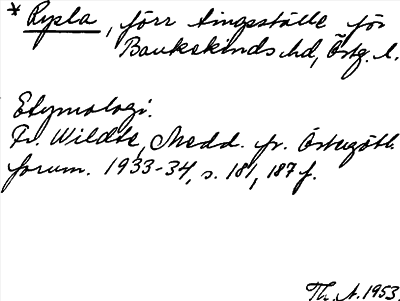 * Rysla, förr tingsställe för
Bankekinds hd, Östg. l.
Etymologi.
Fr. Wildte, Medd. fr. Östergötl.
fornm. 1933-34, s. 181, 187 f.
Th. A. 1953.